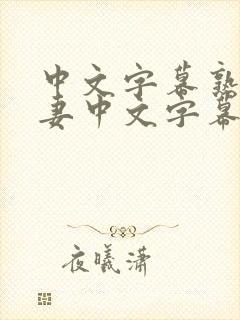 中文字幕熟
妻中文字幕
夜曦潇